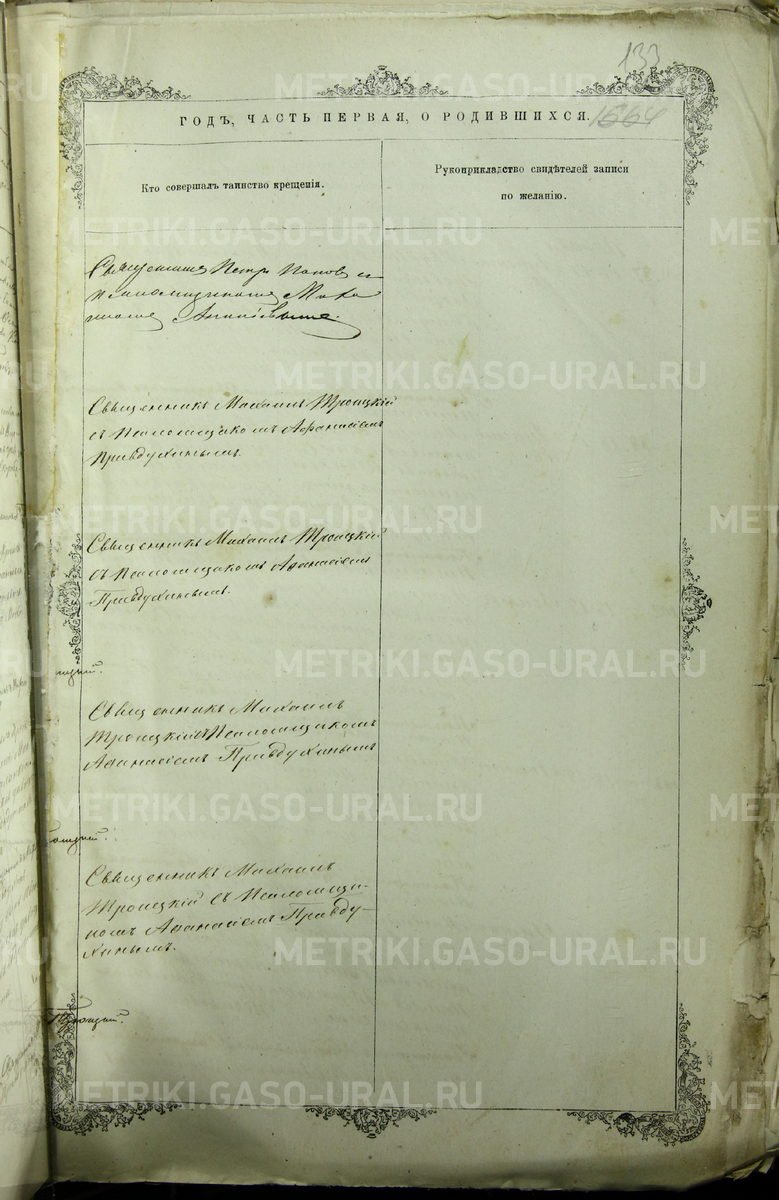 133
ГОДЪ, ЧАСТЬ ПЕРВАЯ, О РОДИВШИХСЯ.
1664
Кто совершалъ таинство крещенія.
Рукоприкладство свидѣтелей записи
по желанію.
Священникъ Петръ Поповъ съ
Псаломщикомъ
Священникъ Михаилъ Троицкій
съ Псаломщикомъ Афанасіемъ
Правдухинымъ.
Священникъ Михаилъ Троицкій
съ Псаломщикомъ Афанасіемъ
Правдухинымъ.
Священникъ Михаилъ
Троицкій съ Псаломщикомъ
Афанасіемъ Правдухинымъ
Священникъ Михаилъ
Троицкій съ Псаломщи-
комъ Афанасіемъ Правду-
хинымъ.
Троицкій.
METRIKI.GASO-URAL.RU